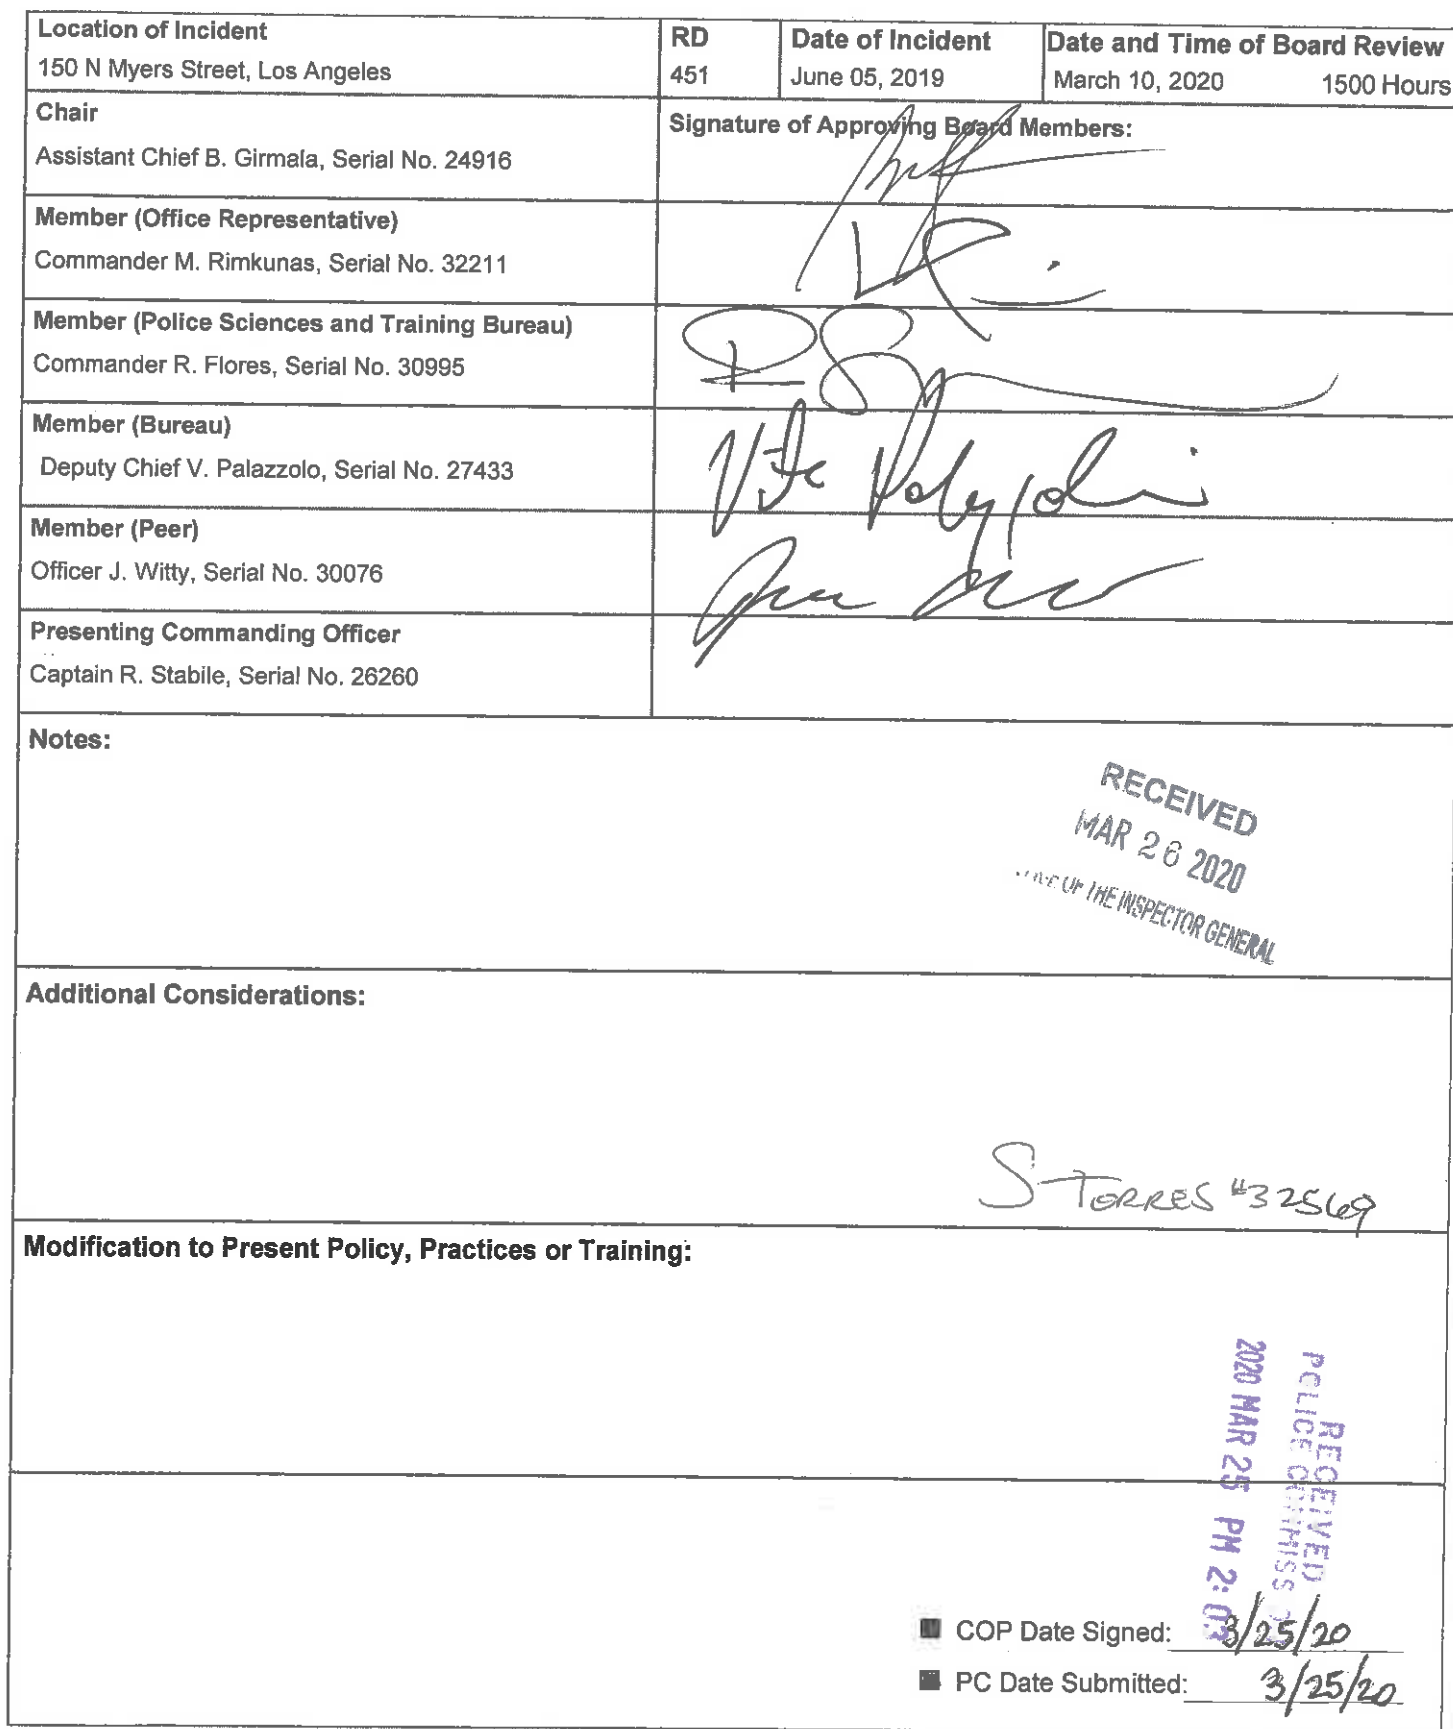 Location of Incident
150 N Myers Street, Los Angeles
RD
451
Date of Incident
June 05, 2019
Date and Time of Board Review
March 10, 2020 1500 Hours
Chair
Assistant Chief B. Girmala, Serial No. 24916
Signature of Approving Board Members:
Member (Office Representative)
Commander M. Rimkunas, Serial No. 32211
Member (Police Sciences and Training Bureau)
Commander R. Flores, Serial No. 30995
Member (Bureau)
Deputy Chief V. Palazzolo, Serial No. 27433
Member (Peer)
Officer J. Witty, Serial No. 30076
Presenting Commanding Officer
Captain R. Stabile, Serial No. 26260
Notes:
RECEIVED
MAR 26 2020
OF THE INSPECTOR GENERAL
Additional Considerations:
S TORRES #32569
Modification to Present Policy, Practices or Training:
RECEIVED
POLICE
2020 MAR 25 PM 2:03
COP Date Signed: 3/25/20
PC Date Submitted: 3/25/20